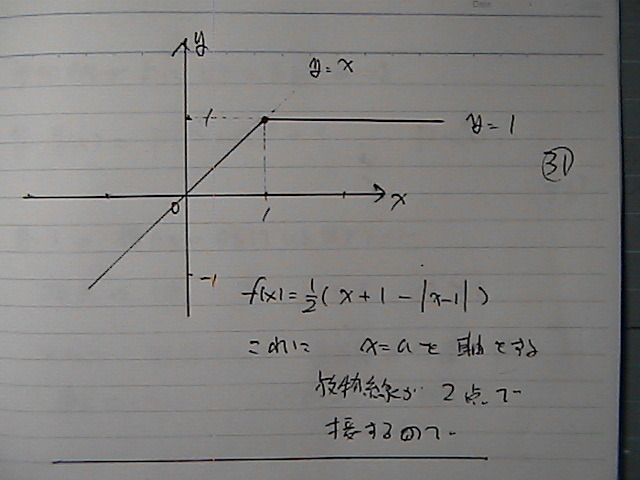 y
y=x
1
y=1
㉛
0
1
x
-1
f(x)=1/2(x+1-|x-1|)
これに x=aを軸とする
放物線が 2点で
接するので